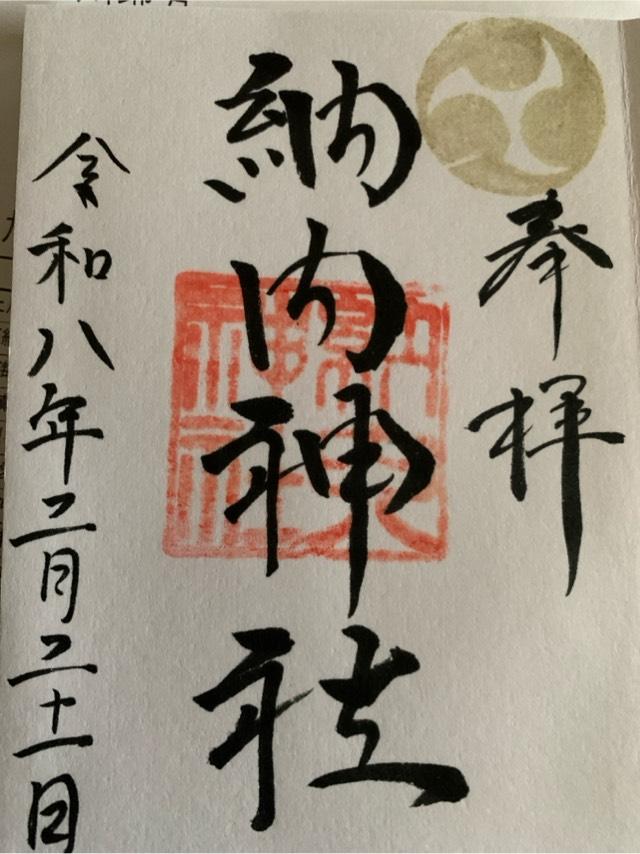 奉拝
納内神社
令和八年二月二十一日